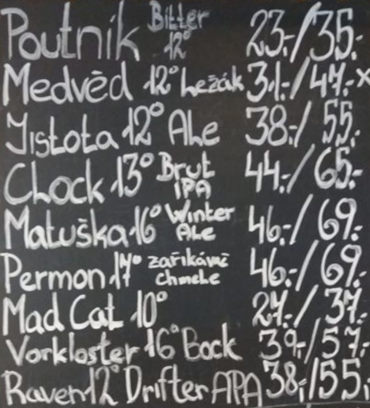 Poutník Bitter 12° 23,-/35,-
Medvěd 12° Ležák 31,-/47,-x
Jistota 12° Ale 38,-/55,-
Clock 13° Brut IPA 44,-/65,-
Matuška 16° Winter Ale 46,-/69,-
Permon 17° zaříkávač chmele 46,-/69,-
Mad Cat 10° 27,-/37,-
Vorkloster 16° Bock 39,-/57,-
Raven 12° Drifter APA 38,-/55,-